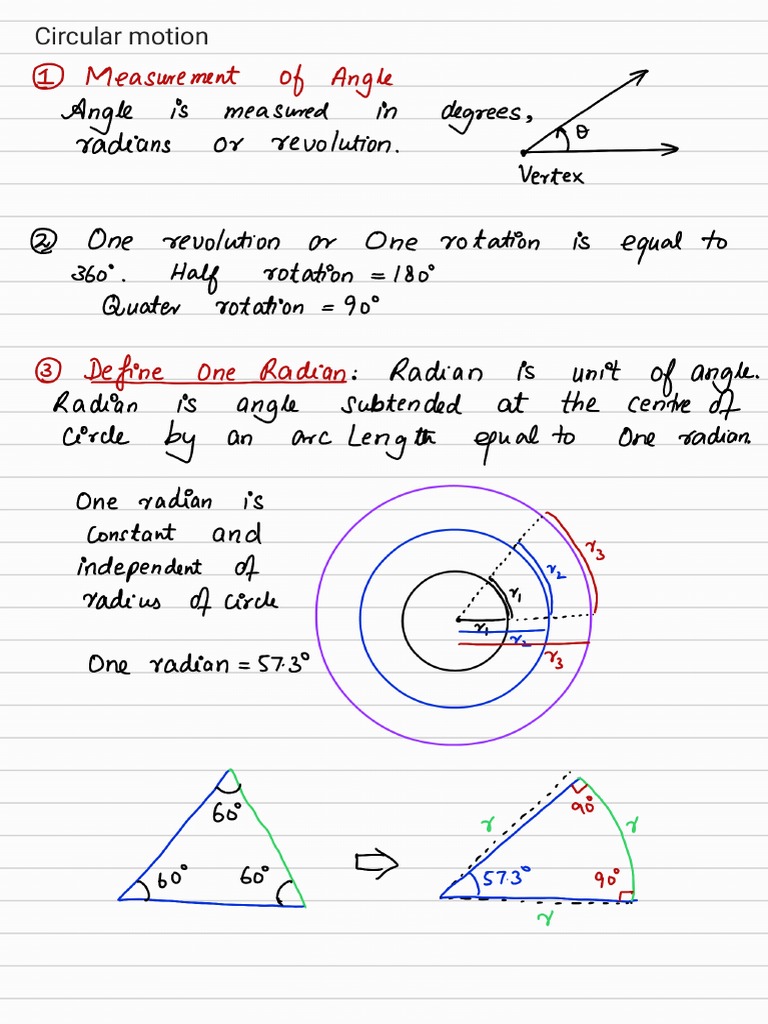 Circular motion
① Measurement of Angle
Angle is measured in degrees,
radians or revolution.
θ
Vertex
② One revolution or One rotation is equal to
360°. Half rotation = 180°
Quater rotation = 90°
③ Define One Radian: Radian is unit of angle.
Radian is angle subtended at the centre of
circle by an arc Length equal to One radian.
One radian is
constant and
independent of
radius of circle
One radian = 57.3°
r₁
r₂
r₃
r₁
r₂
r₃
60°
60° 60°
r
90°
r
57.3°
90°
r